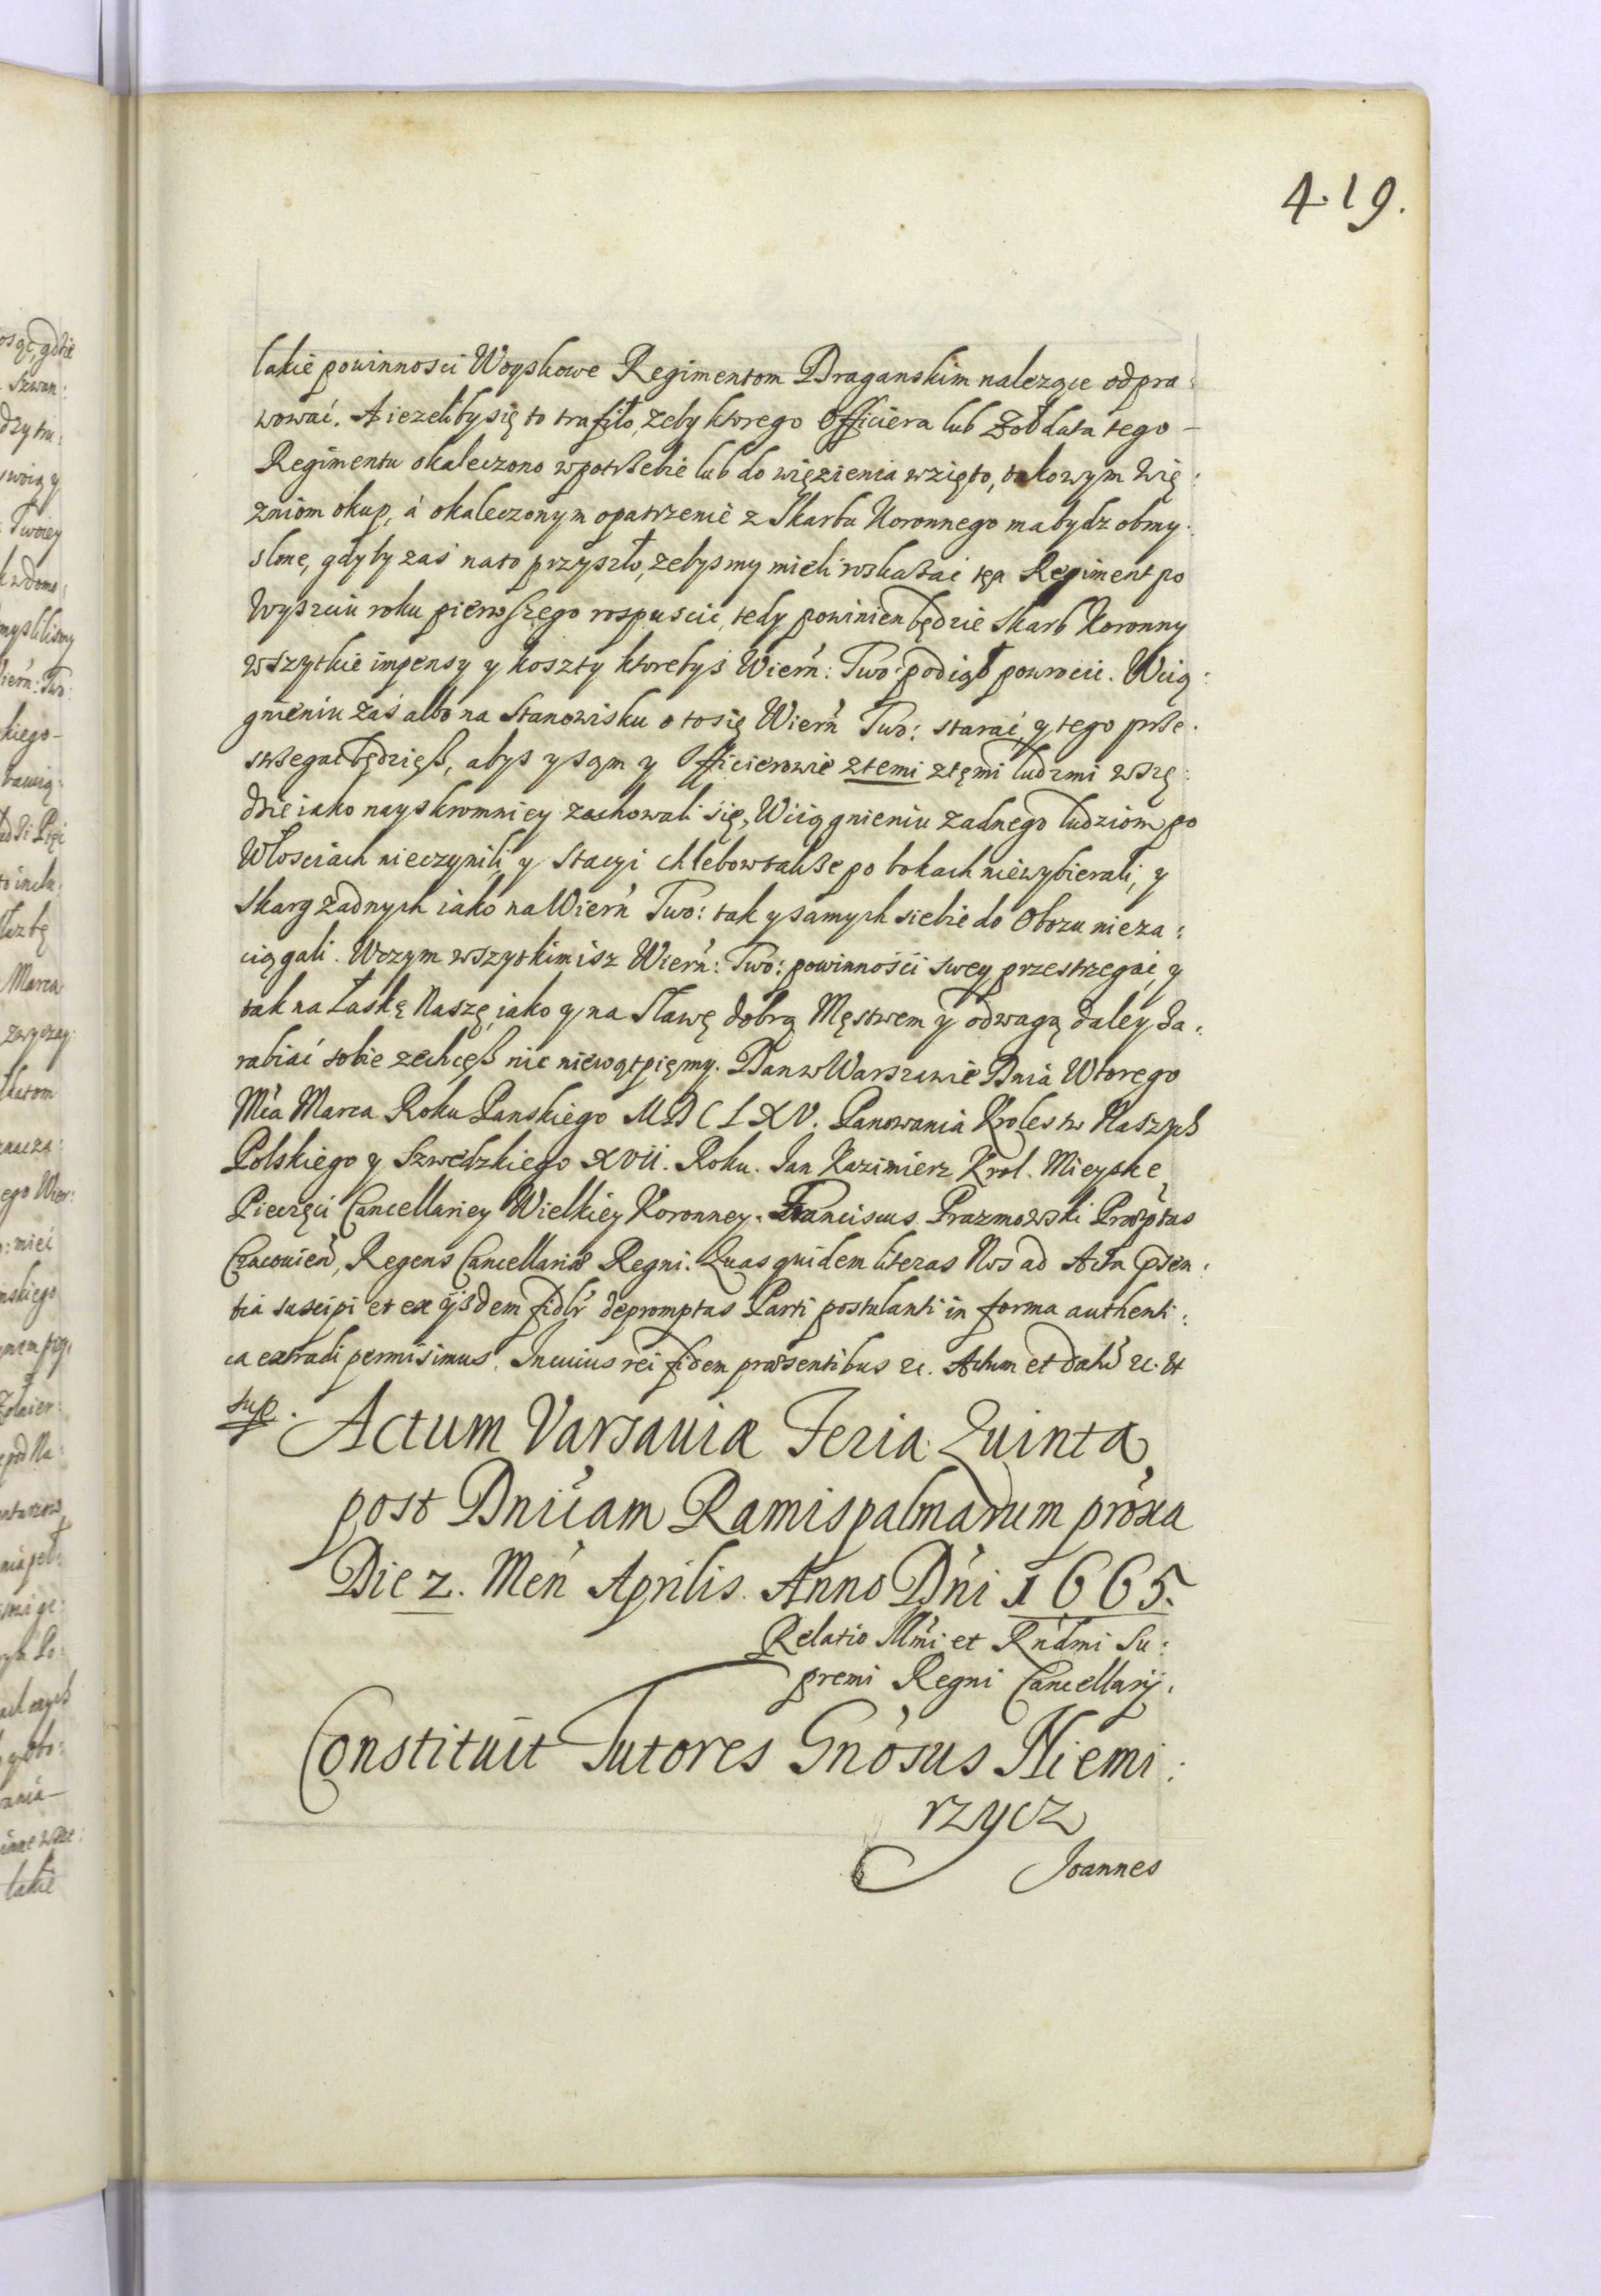 4.19.
lakie powinnosci Woyskowe Regimentom Draganskim nalezące odpra:
wować. A iezeliby się to trafiło, zeby ktorego Officiera lub Zołdata tego –
Regimentu okaleczono w potrzebie lub do więzienia wzięto, takowym Wię:
zniom okup, á okaleczonym opatrzenie z Skarbu Koronnego ma bydz obmy:
slone, gdyby zaś na to przyszło, zebysmy mieli roskazać ten Regiment po
Wyszciu roku pierwszego rospuscic, tedy powinien będzie Skarb Koronny
wszytkie impensy y koszty ktorebyś Wiern: Two: podiął powrocic. Wcią:
gnieniu zaś albo na Stanowisku o to się Wiern Two: starać, y tego prze:
strzegać będziesz, abyś y sam y Officierowie z temi z tęmi ludzmi wszę:
dzie iako nayskromniey zachowali się, Wciągnieniu zadnego ludziom po
Włosciach nieczynili, y Stacyi chlebow takze po bokach niewybierali, y
Skarg zadnych iako na Wiern Two: tak y samych siebie do Obozu nieza:
ciągali. Wczym wszytkim isz Wiern: Two: powinności swey przestrzegać, y
tak na Łaskę Naszę, iako y na Sławę dobrą Męstwem y odwagą daley Za:
rabiać sobie zechcesz nic niewątpięmy. Dan w Warszawie Dnia Wtorego
Mca Marca Roku Panskiego MDCLXV. Panowania Krolestw Naszych
Polskiego y Szwedzkiego XVII. Roku. Jan Kazimierz Krol. Mieysce
Pieczęci Cancellariey Wielkiey Koronney. Franciscus Prazmowski Præptus
Cracovien, Regens Cancellariæ Regni. Quas quidem literas Nos ad Acta præn:
tia suscipi et ex ijsdem fidlr depromptas Parti postulanti in forma authenti:
ca extradi permisimus. In cuius rei fidem præsentibus &c. Actum et datu &c. Ut
sup.
Actum Varsaviæ Feria Quinta
post Dnicam Ramispalmarum proxa
Die 2. Men Aprilis Anno Dni 1665.
Relatio Illmi et Rndmi Su:
premi Regni Cancellarij.
Constituit Tutores Gnosus Niemi:
rzycz
Joannes